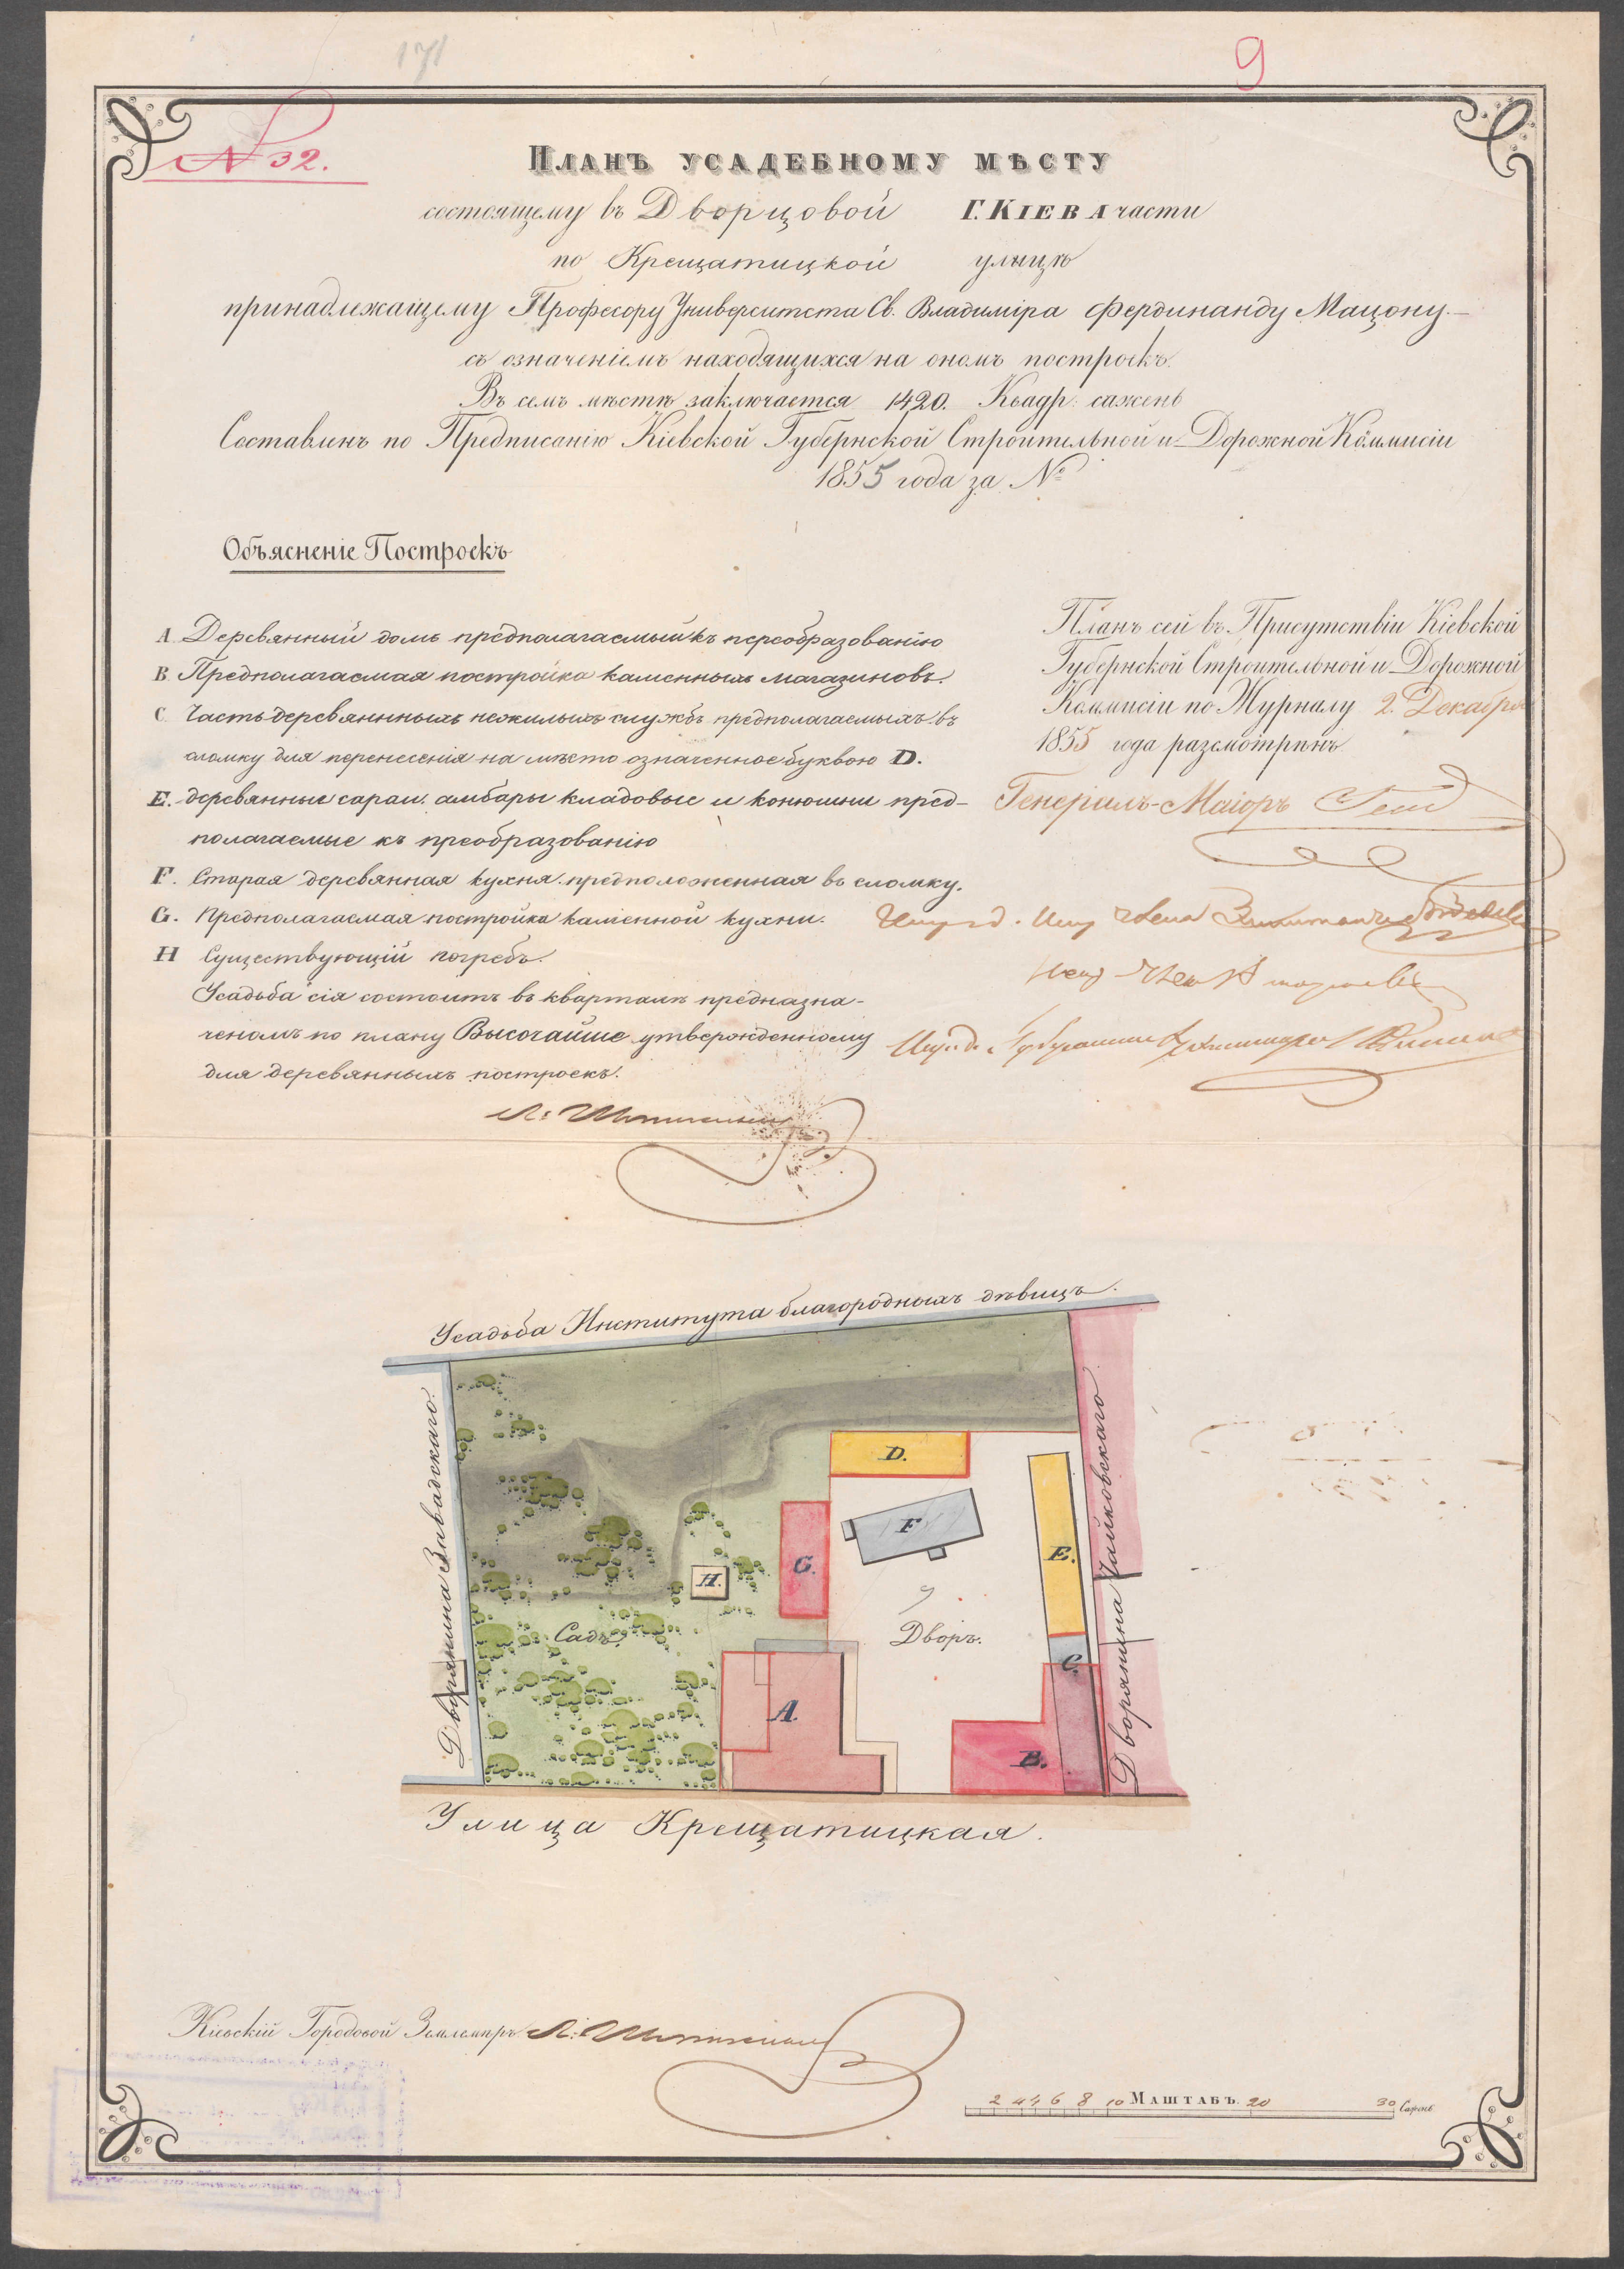 171
9
№ 32.
Планъ усадебному мѣсту
состоящему въ Дворцовой Г. Кіева части
по Крещатицкой улицѣ
принадлежащему Професору Университета Св. Владиміра Фердинанду Мацону.
съ означеніемъ находящихся на ономъ построекъ.
Въ семъ мѣстѣ заключается 1420. Квадр: сажень
Составленъ по Предписанію Кіевской Губернской Строительной и Дорожной Коммисіи
1855 года за №
Объясненіе Построекъ
A Деревянный домъ предполагаемый къ переобразованію
B. Предполагаемая постройка каменныхъ магазиновъ.
C Часть деревяннныхъ нежилыхъ службъ предполагаемыхъ въ
сломку для перенесенія на мѣсто означенное буквою D.
E. деревянные сараи. амбары кладовые и конюшни пред-
полагаемые къ преобразованію
F. Старая деревянная кухня предположенная въ сломку.
G. Предполагаемая постройка каменной кухни.
H Существующій погребъ.
Усадьба сія состоитъ въ кварталѣ предназна-
ченомъ по плану Высочайше утвержденному
для деревянныхъ построекъ.
Планъ сей въ Присутствіи Кіевской
Губернской Строительной и Дорожной
Коммисіи по Журналу 2. Декабря
1855 года разсмотрѣнъ
Генералъ-Маіоръ
Усадьба Института благородныхъ дѣвицъ.
Дворянина Завадскаго.
Дворянина Чайковскаго
D.
F
E.
G.
H.
Садъ.
Дворъ.
C.
A.
B.
Улица Крещатицкая.
Кіевскій Городовой Землемѣръ
2 4 6 8 10 Маштабъ. 20 30 Сажень